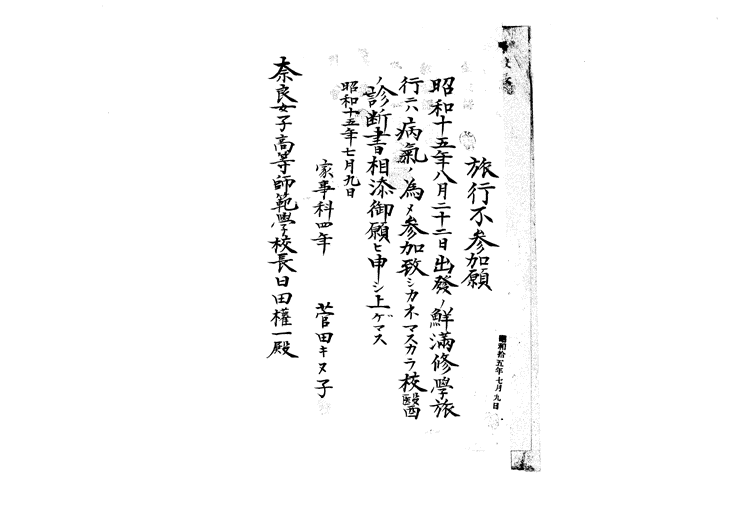 旅行不参加願
昭和十五年八月二十二日出發ノ鮮滿修學旅
行ニハ病氣ノ為メ参加致シカネマスカラ校醫
ノ診断書相添御願ヒ申シ上ゲマス
昭和十五年七月九日
家事科四年 菅田キヌ子
奈良女子高等師範學校長日田權一殿
昭和拾五年七月九日